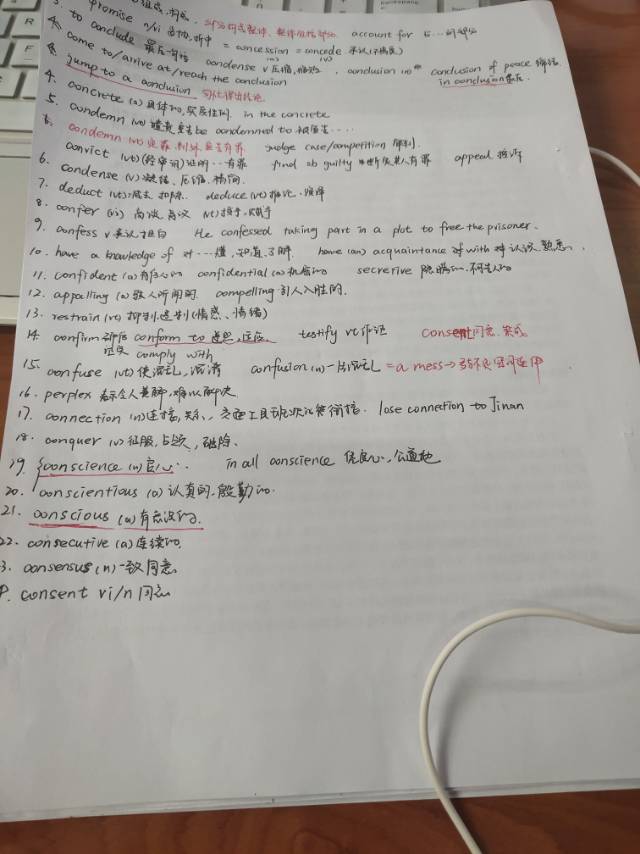 组成,构成. 部分构成整体、整体包括部分. account for 占…的部分
promise n/vi 妥协,折中 = concession = concede 承认(不情愿)
to conclude 最后一句话 condense v 压缩, conclusion (n) conclusion of peace 缔结
come to/arrive at/reach the conclusion in conclusion 最后.
jump to a conclusion 匆忙得出结论
4. concrete (a) 具体的, 实质性的. in the concrete
5. condemn (vt) 谴责 be condemned to 被
condemn (vt) 定罪, 判处 judge case/competition
convict (vt)(经审问)证明…有罪 find sb guilty 判断某人有罪 appeal 控诉
6. condense (v) 凝结、压缩、精简.
7. deduct (vt) 减去 扣除. deduce (vt) 推论、演绎
8. confer (vi) 商议 (vt) 授予
9. confess v 承认坦白 He confessed taking part in a plot to free the prisoner.
10. have a knowledge of 对…懂,知道,了解. have (an) acquaintance of with 对 认识、熟悉.
11. confident (a) 有信心的 confidential (a) 机密的 secrerive
12. appalling (a) 骇人听闻的. compelling 引人入胜的.
13. restrain (vt) 抑制,遏制(情感、情绪)
14. confirm conform to 遵照,适应. testify vt 作证 consent 同意. 赞成
证实 comply with
15. confuse (vt) 使混乱,混淆 confusion (n) 一片混乱 = a mess →
16. perplex 令人费解,难以解决
17. connection (n) 连接, 关系, 交通工具班次的衔接. lose connection to Jinan
18. conquer (v) 征服,占领,破除.
19. conscience (n) 良心. in all conscience 凭良心,公道地
20. conscientious (a) 认真的.殷勤的.
21. conscious (a) 有意识的.
22. consecutive (a) 连续的.
3. consensus (n) 一致同意.
consent vi/n 同意